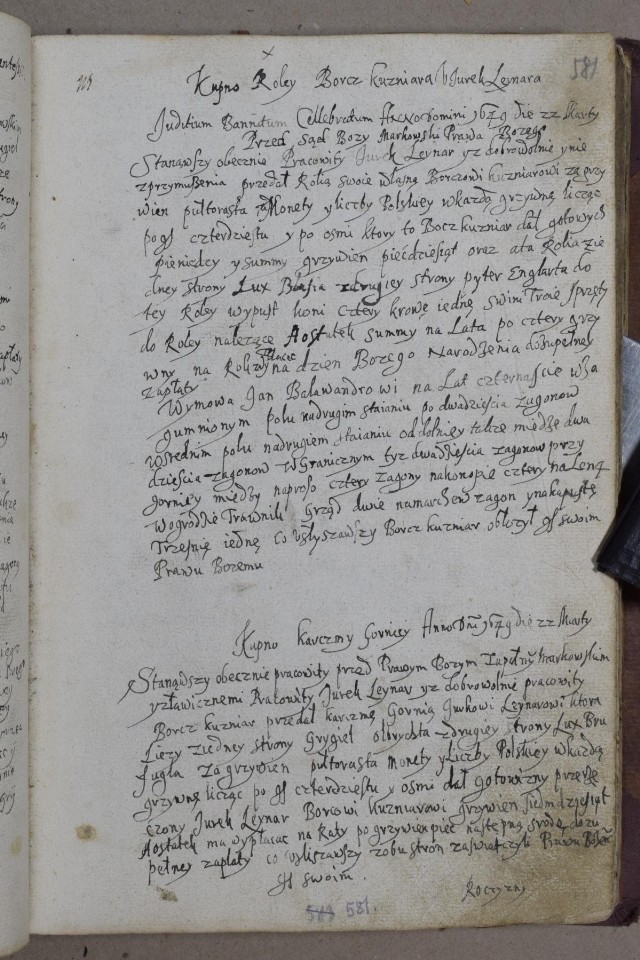 581
Kupno Roley Borcz kuzniara U Jurek Leynara
Juditium Bannitum Cellebratum Anno Domini 1679 die 22 Marty
Przed Sąd Bozy Markowski Prawa Bozego
Stanąwszy obecznie Pracowity Jurek Leynar yz dobrowolnie ynie
zprzymuszenia przedał Rolią swoie własną Borczowi kuzniarowi za grzy
wien pułtorasta Monety yliczby Polskiey wkazdą grzywnę liczęc
po gſ czterdziestu y po osmi ktory to Borcz kuzniar dał gotowych
pieniedzy ysummy grzywien pięcdziesiąt oraz ata Rolia zie
dney strony Lux Błasia zdrugiey strony pyter Englarta do
tey Roley wypust koni cztery krowę iednę swini Troie sprzęty
do Roley nalezące Aostatek summy na Lata po cztery grzy
wny na Rok płacic na dzien Bozego Narodzenia dozupełney
zapłaty
Wymowa Jan Baławandrowi na Lat czternascie wza
gumnionym polu nadrugim staianiu po dwadziescia zagonow
wsrednim polu nadrugiem staianiu oddolniey takze miedze dwa
dziescia zagonow wGranicznym tyz dwadziescia zagonow przy
gorniey miedzy naproso cztery zagony nakonopie cztery na Len
wogrodzie Trawnik grząd dwie namarchew zagon ynakapustę
Trzesnię iednę Co usłyszawszy Borcz kuzniar obłozył gſ swoim
Prawu Bozemu
Kupno karczmy Gorniey Anno Dni 1679 die 22 Marty
Stanąwszy obecznie pracowity przed Prawym Bozym Zupełny Markowskim
yzławicznemi Pracowity Jurek Leynar yz dobrowolnie pracowity
Borcz kuzniar przedał karczmę Gornią Jurkowi Leynarowi ktora
Liezy ziedney strony Grygiel olbrychta zdrugiey strony Lux Bru
zagrzywien pułtorasta Monety yliczby Polskiey wkazdą
grzywnę licząc po gſ czterdziestu y osmi dał gotowizny przerze
czony Jurek Leynar Borcowi kuzniarowi grzywien siedmdziesiąt
Aostatek ma wypłacac na Raty po grzywien piec następną srodę dozu
pełney zapłaty co usliszawszy zobu stron zaswiatczyli Prawu
gſ swoim.
Roczyzny
581.